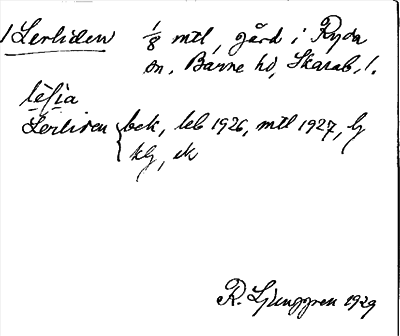 1 Lerliden 1/8 mtl, gård i Ryda
sn, Barne hd, Skarab. l.
lèlia
Lerliden { bek, leb 1926, mtl 1927, lj
kg, ek
R. Ljunggren 1929